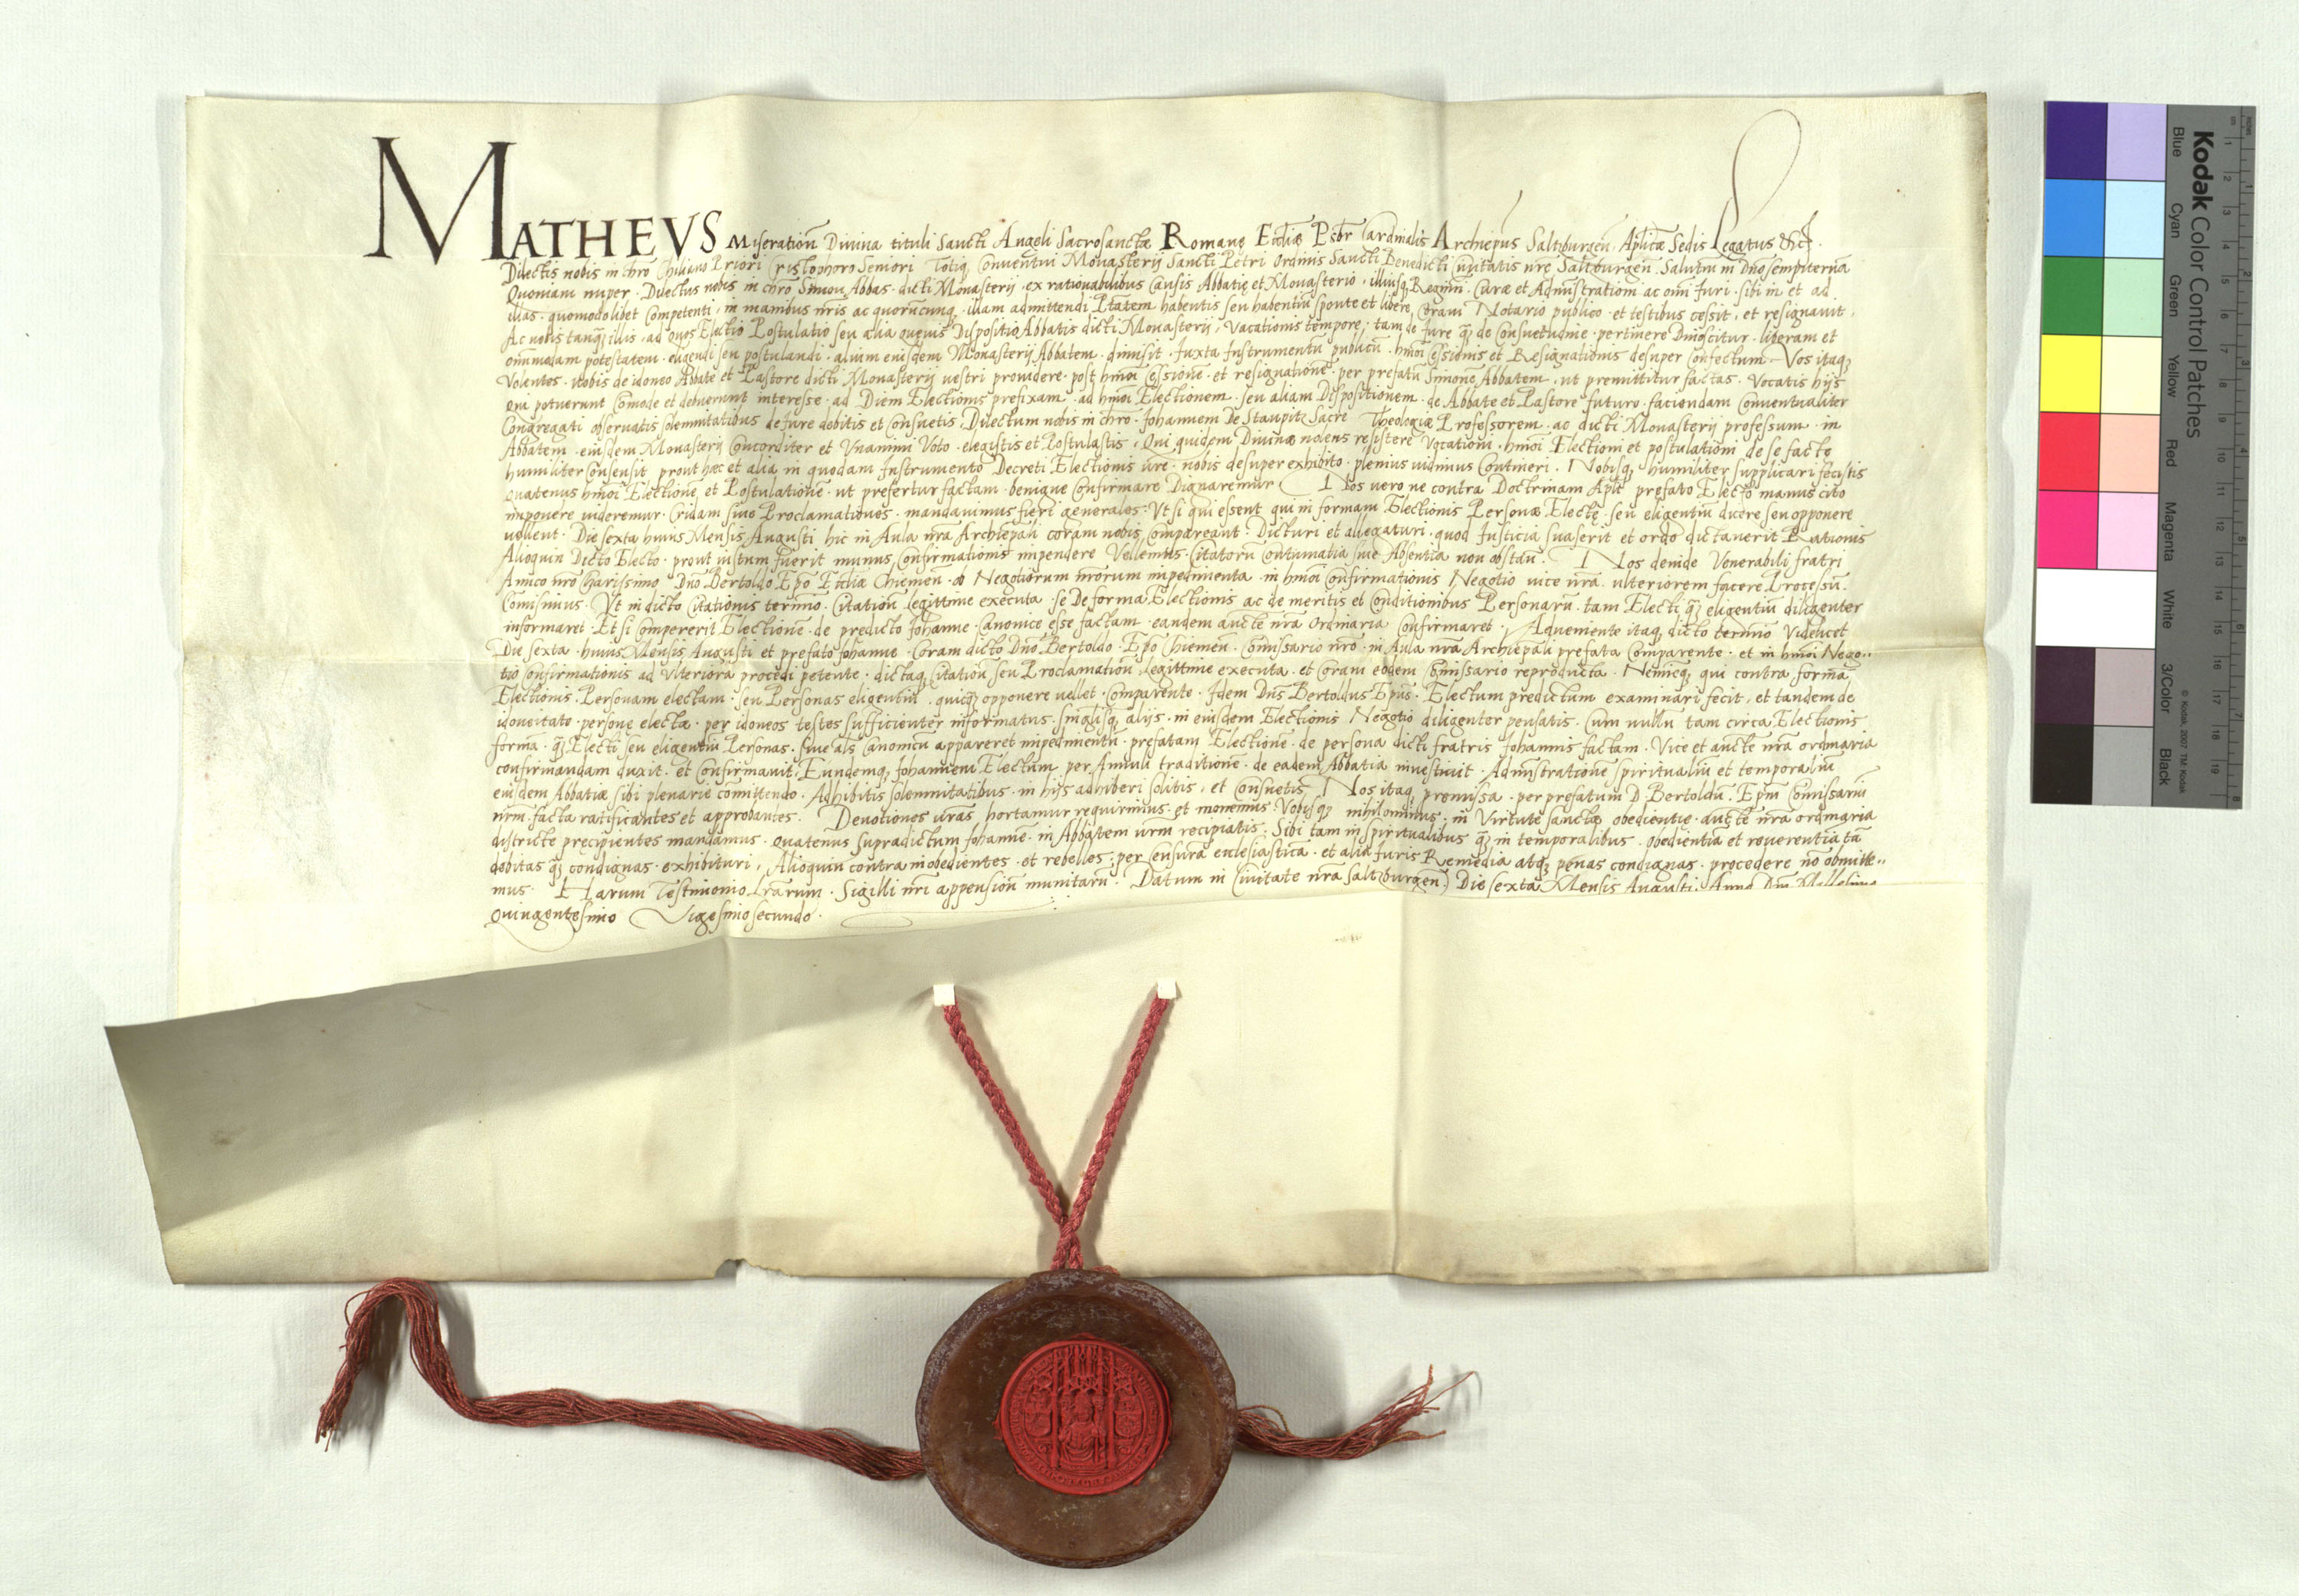 MATHEVS Miseration̄ Diuina tituli Sancti Angeli Sacrosanctæ Romanę Ecc̄liæ Psbr̄ Cardinalis Archiep̄us Saltzburgen̄. Ap̄licæ Sedis Legatus &c̄.
Dilectis nobis in chr̄o Chiliano Priori Cristophoro Seniori Totiq; Conuentui Monasterij Sancti Petri Ordinis Sancti Benedicti Ciuitatis nr̄e Saltzburgen̄. Salutm̄ in Dn̄o sempiternā
Quoniam nuper. Dilectus nobis in chr̄o Simon Abbas. dicti Monasterij. ex rationabilibus Causis Abbatię et Monasterio. illiusq; Regimī. Curæ et Admīstrationi ac om̄i Juri. sibi in et ad
illas. quomodolibet competenti. in manibus nr̄is ac quorūcunq; illam admittendi Ptātem habentis seu habentiū sponte et libere, Coram Notario publico. et testibus cessit. et resignauit.
Ac nobis tanq̄ illis. ad quos Electio Postulatio seu alia queuis Dispositio Abbatis dicti Monasterij, Vacationis tempore, tam de Jure q̄ de Consuetudine. pertinere Dinoscitur. liberam et
om̄imodam potestatem. eligendi seu postulandi. alium eiusdem Monasterij Abbatem. dimisit. Juxta Instrumentū publicū. hmōi Cessionis et Resignationis desuper Confectum. Vos itaq;
Volentes. Vobis de idoneo Abbate et Pastore dicti Monasterij uestri prouidere. post hmōi Cessionē. et resignationē. per prefatū Simonē Abbatem. ut premittitur factas. Vocatis hijs
qui potuerunt Com̄ode et debuerunt interesse. ad Diem Electionis prefixam. ad hmōi Electionem. seu aliam Dispositionem. de Abbate et Pastore futuro. faciendam Conuentualiter
Congregati obseruatis solemnitatibus de Jure debitis et Consuetis, Dilectum nobis in chr̄o. Johannem De Staupitz Sacre Theologiæ Professorem. ac dicti Monasterij professum. in
Abbatem. eiusdem Monasterij Concorditer et Vnanimi Voto. elegistis et Postulastis. Qui quidem Diuinæ nolens resistere Vocationi. hmōi Electioni et postulationi de se factę
humiliter Consensit prout hæc et alia in quodam Instrumento Decreti Electionis ur̄e. nobis desuper exhibito. plenius uidimus Contineri. Nobisq; humiliter supplicari fecistis
quatenus hmōi Electionē et Postulationē. ut prefertur factam. benigne Confirmare Dignaremur Nos uero ne contra Doctrinam Apl̄i prefato Electo manus cito
imponere uideremur. Cridam siue Proclamationes. mandauimus fieri generales: Vt si qui essent qui in formam Electionis Personæ Electę. seu eligentiū dicere seu opponere
uellent. Die sexta huius Mensis Augusti hic in Aula nr̄a Archiep̄ali coram nobis, compareant: Dicturi et allegaturi. quod Justicia suaserit et ordo dictauerit Rationis
Alioquin Dicto Electo. prout iustum fuerit munus Confirmationis inpendere Vellemus. Citatorū contumatia siue Absentia non obstan̄. Nos deinde Venerabili fratri
Amico nr̄o charissimo Dn̄o Bertoldo Ep̄o Ecc̄liæ Chiemen̄. ob Negotiorum nr̄orum impedimenta. in hmōi Confirmationis Negotio uice nr̄a. ulteriorem facere Processū.
Com̄isimus. Vt in dicto Citationis term̄o. Citation̄ legittime executa. se De forma Electionis ac de meritis et Conditionibus Personarū. tam Electi q̄ eligentiū diligenter
informaret. Et si Compererit Electionē. de predicto Johanne. Canonice esse factam. eandem aucte nr̄a Ordinaria Confirmaret. Adueniente itaq; dicto termīo Videlicet
Die sexta. huius Mensis Augusti et prefato Johanne. Coram dicto Dn̄o Bertoldo. Ep̄o Chiemen̄. Com̄issario nr̄o. in Aula nr̄a Archiep̄ali prefata Comparente. et in hmōi Nego..
tio Confirmationis ad Vlteriora procedi petente. dictaq; Citation̄ seu Proclamation̄ legittime executa. et Coram eodem Com̄issario reproducta. Nemineq; qui contra formā
Electionis. Personam electam. seu Personas eligentiū. quicq̄ opponere uellet. comparente. Idem Dn̄s Bertoldus Ep̄us. Electum predictum examinari fecit. et tandem de
idoneitate. persone electæ. per idoneos testes sufficienter informatus. singlisq; alijs. in eiusdem Electionis Negotio diligenter pensatis. Cum nullū tam circa Electionis
formā. q̄ Electi seu eligentiū Personas. siue als Canonicū appareret inpedimentū. prefatam Electionē. de persona dicti fratris Johannis factam. Vice et aucte nr̄a ordinaria
confirmandam duxit. et Confirmauit, Eundemq; Johannem Electum per Annuli traditionē. de eadem Abbatia inuestiuit. Admīstrationē spiritualiū et temporaliū
eiusdem Abbatiæ sibi plenarie com̄ittendo. Adhibitis solemnitatibus. in hijs adhiberi solitis. et Consuetis, Nos itaq; premissa. per prefatum D. Bertoldū. Ep̄m Com̄issariū
nr̄m. facta ratificantes et approbantes. Deuotiones ur̄as hortamur requirimus. et monemus Vobisq; nihilominus. in Virtute sanctæ obedientie. aucte nr̄a ordinaria
districte precipientes mandamus. quatenus supradictum Johannē. in Abbatem ur̄m recipiatis: Sibi tam in spiritualibus q̄ in temporalibus. obedientiā et reuerentiā tā
debitas q̄ condignas. exhibituri, Alioquin contra inobedientes. et rebelles. per Censurā ecclesiasticā. et alia Juris Remedia atq; penas condignas. procedere nō obmitte..
mus. Harum Testimonio Lrārum. Sigilli nr̄i appension̄ munitarū. Datum in Ciuitate nr̄a Saltzburgen̄. Die sexta Mensis Augusti Anno Dn̄i Millesimo
Quingentesimo Vigesimosecundo.
Kodak Color Control Patches
Blue Cyan Green Yellow Red Magenta White 3/Color Black
© Kodak, 2007 TM: Kodak